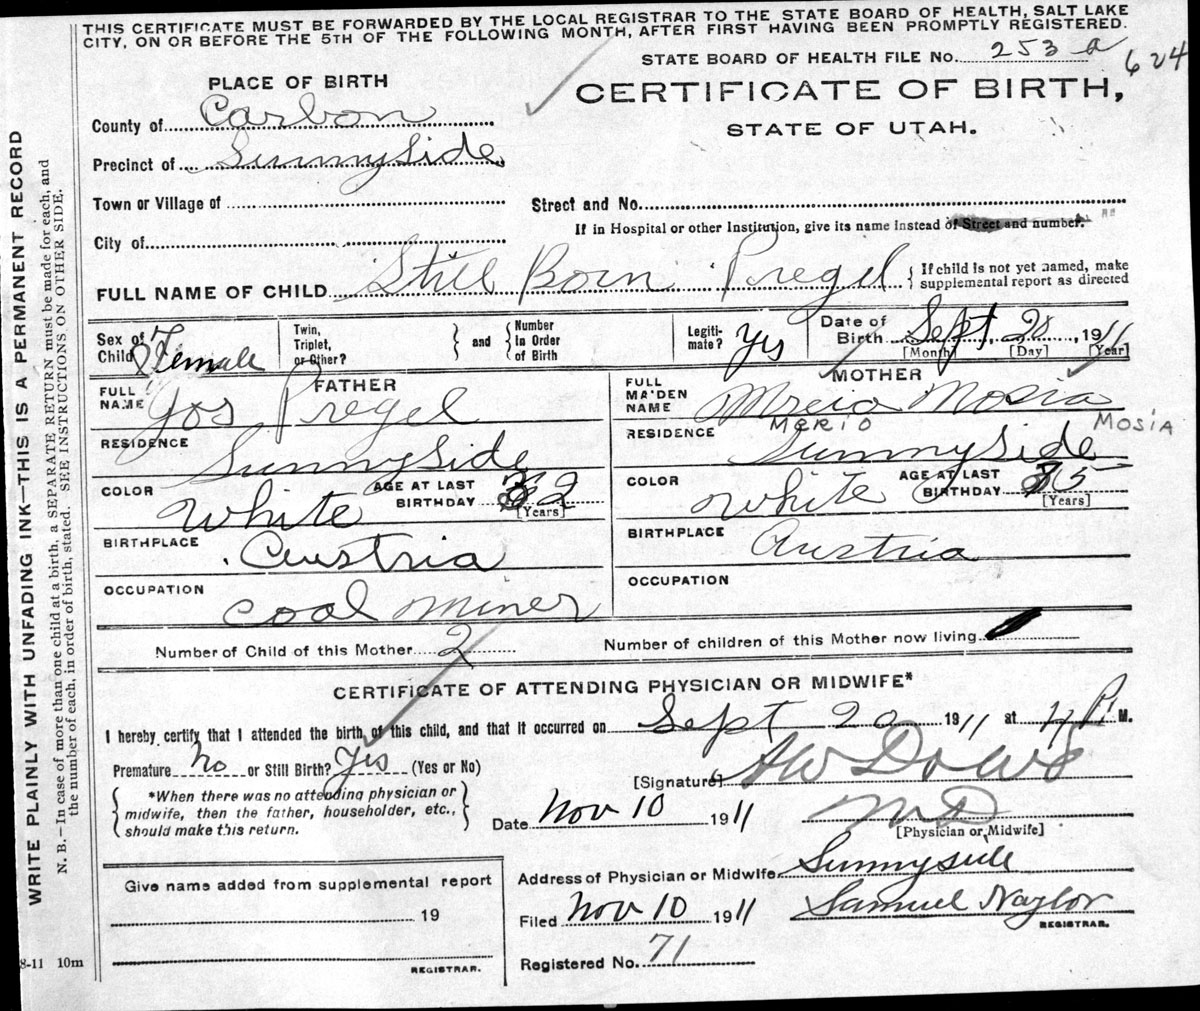 THIS CERTIFICATE MUST BE FORWARDED BY THE LOCAL REGISTRAR TO THE STATE BOARD OF HEALTH, SALT LAKE
CITY, ON OR BEFORE THE 5TH OF THE FOLLOWING MONTH, AFTER FIRST HAVING BEEN PROMPTLY REGISTERED.
STATE BOARD OF HEALTH FILE No. 253 a 624
PLACE OF BIRTH
CERTIFICATE OF BIRTH,
STATE OF UTAH.
County of Carbon
Precinct of Sunnyside
Town or Village of
Street and No.
City of
If in Hospital or other Institution, give its name instead of Street and number.
FULL NAME OF CHILD Still Born Pregel { If child is not yet named, make supplemental report as directed
Sex of Child Female
Twin, Triplet, or Other?
and
Number in Order of Birth
Legiti-mate? Yes
Date of Birth Sept. 20, 1911
[Month] [Day] [Year]
FATHER
FULL NAME Jos Pregel
RESIDENCE Sunnyside
COLOR White
AGE AT LAST BIRTHDAY 32 [Years]
BIRTHPLACE Austria
OCCUPATION Coal Miner
MOTHER
FULL MAIDEN NAME Mosia
MERIO MOSIA
RESIDENCE Sunnyside
COLOR White
AGE AT LAST BIRTHDAY [Years]
BIRTHPLACE Austria
OCCUPATION
Number of Child of this Mother 2
Number of children of this Mother now living
CERTIFICATE OF ATTENDING PHYSICIAN OR MIDWIFE*
I hereby certify that I attended the birth of this child, and that it occurred on Sept 20 1911 at 4 P. M.
Premature No or Still Birth? Yes (Yes or No)
*When there was no attending physician or midwife, then the father, householder, etc., should make this return.
[Signature] MD
[Physician or Midwife]
Date Nov 10 1911
Address of Physician or Midwife Sunnyside
Filed Nov 10 1911 Samuel Naylor
REGISTRAR.
Registered No. 71
Give name added from supplemental report
19
REGISTRAR.
8-11 10m
WRITE PLAINLY WITH UNFADING INK—THIS IS A PERMANENT RECORD
N. B.—In case of more than one child at a birth, a SEPARATE RETURN must be made for each, and
the number of each, in order of birth, stated. SEE INSTRUCTIONS ON OTHER SIDE.